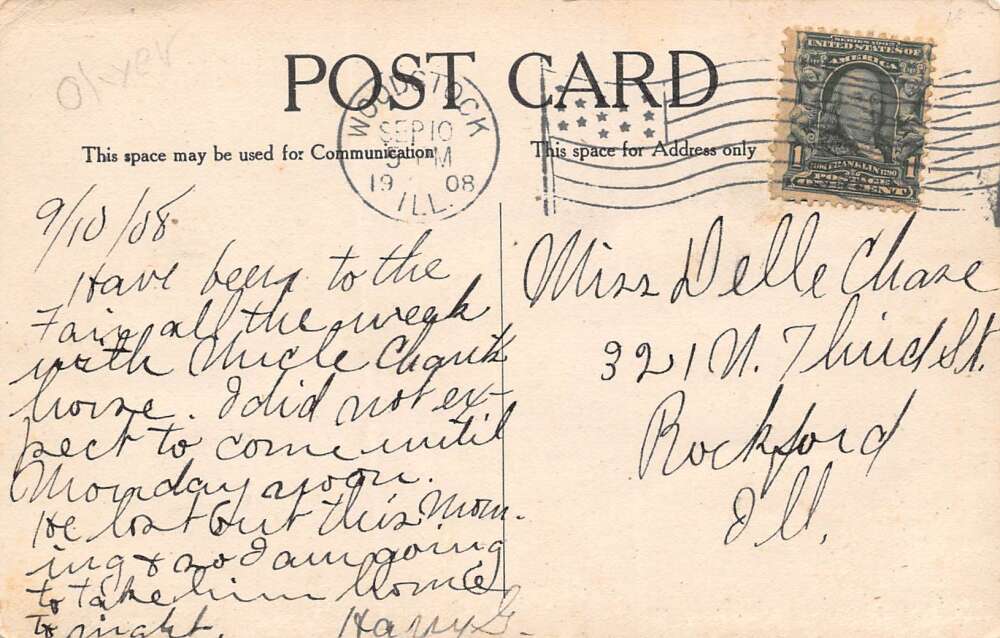 POST CARD
This space may be used for Communication
This space for Address only
WOODSTOCK
SEP 10
M
19 08
ILL.
SERIES 1902
UNITED STATES OF
AMERICA
1 FRANKLIN 1790 1
POSTAGE
ONE CENT
9/10/08
Have been to the
Fair all the week
with Uncle
horse. I did not ex-
pect to come until
Monday noon.
He lost out this morn-
ing & so I am going
to take him home
to night.
Harry G.
Miss Delle Chase
321 N. Third St.
Rockford
Ill.